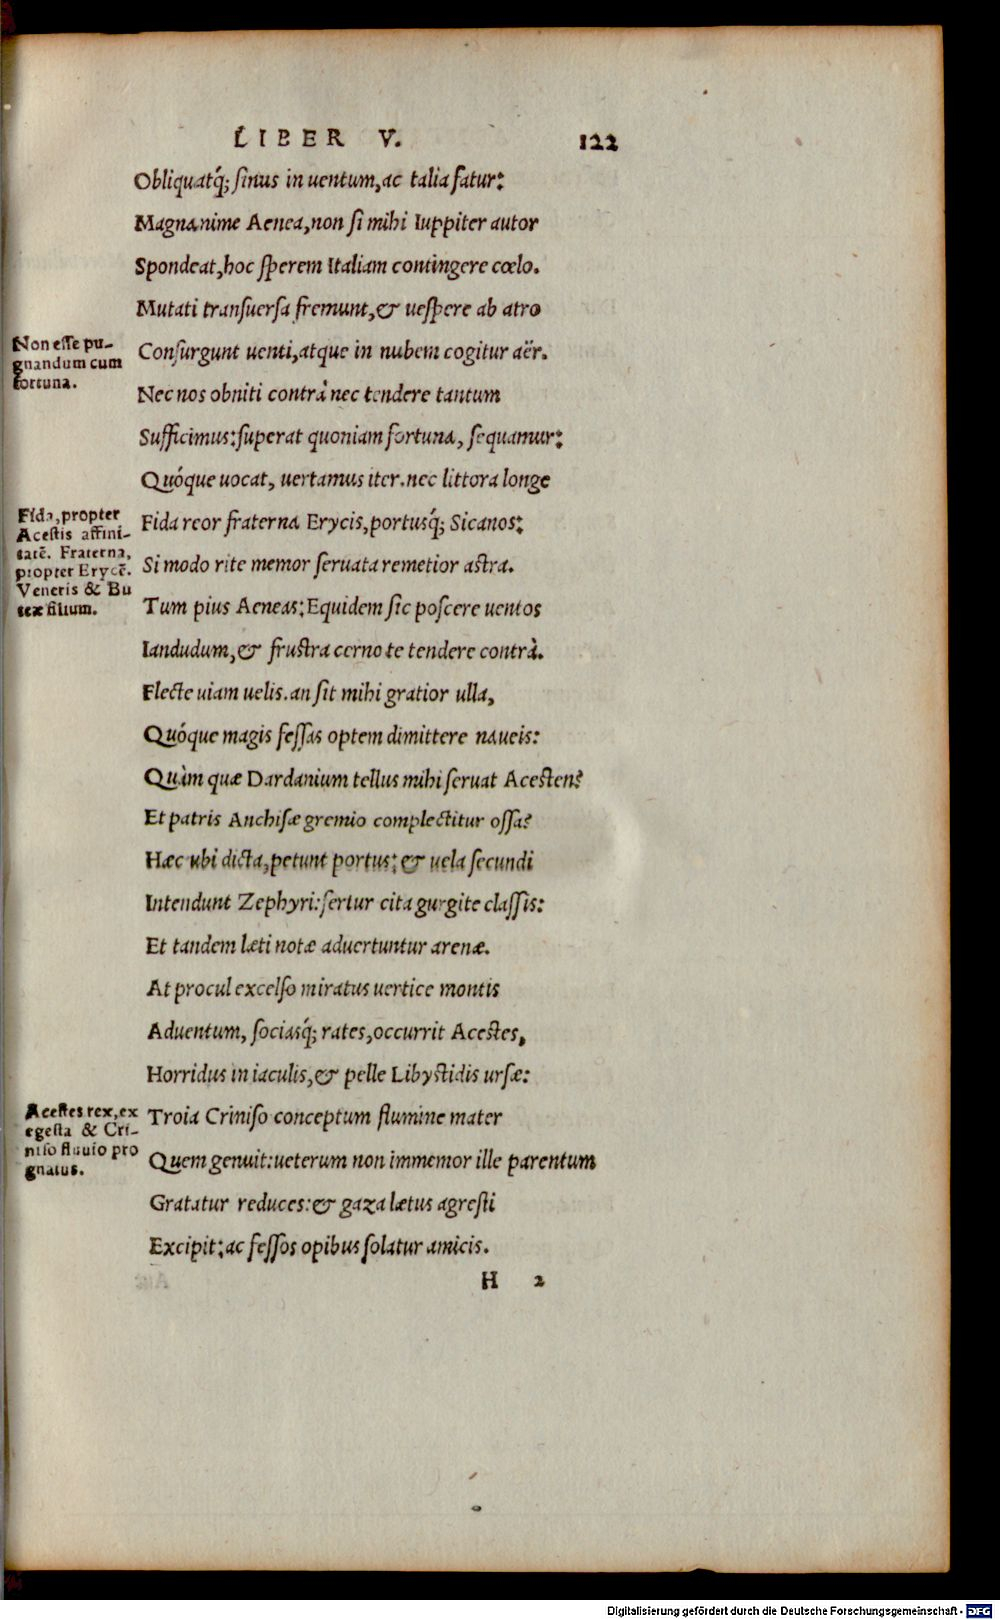 LIBER V. 122
Obliquatq́; sinus in uentum, ac talia fatur:
Magnanime Aenea, non si mihi Iuppiter autor
Spondeat, hoc sperem Italiam contingere cœlo.
Mutati transuersa fremunt, & uespere ab atro
Non esse pu-
gnandum cum
fortuna.
Consurgunt uenti, atque in nubem cogitur aër.
Nec nos obniti contrà nec tendere tantum
Sufficimus: superat quoniam fortuna, sequamur:
Quóque uocat, uertamus iter. nec littora longe
Fida, propter
Acestis affini-
tatē. Fraterna,
propter Erycē.
Veneris & Bu
tæ filium.
Fida reor fraterna Erycis, portusq́; Sicanos:
Si modo rite memor seruata remetior astra.
Tum pius Aeneas: Equidem sic poscere uentos
Iandudum, & frustra cerno te tendere contrà.
Flecte uiam uelis. an sit mihi gratior ulla,
Quóque magis fessas optem dimittere naueis:
Quàm quæ Dardanium tellus mihi seruat Acesten?
Et patris Anchisæ gremio complectitur ossa?
Hæc ubi dicta, petunt portus: & uela secundi
Intendunt Zephyri: fertur cita gurgite classis:
Et tandem læti notæ aduertuntur arenæ.
At procul excelso miratus uertice montis
Aduentum, sociasq́; rates, occurrit Acestes,
Horridus in iaculis, & pelle Libystidis ursæ:
Acestes rex, ex
egesta & Cri-
niso fluuio pro
gnatus.
Troia Criniso conceptum flumine mater
Quem genuit: ueterum non immemor ille parentum
Gratatur reduces: & gaza lætus agresti
Excipit: ac fessos opibus solatur amicis.
H 2
Digitalisierung gefördert durch die Deutsche Forschungsgemeinschaft - DFG